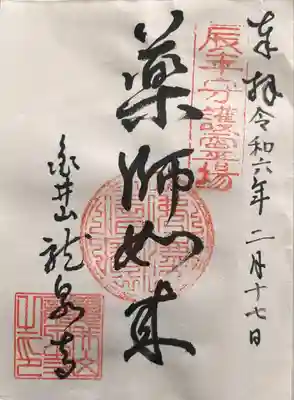 奉拝 令和六年 二月十七日
辰年守護霊場
薬師如来
亀井山 龍泉寺